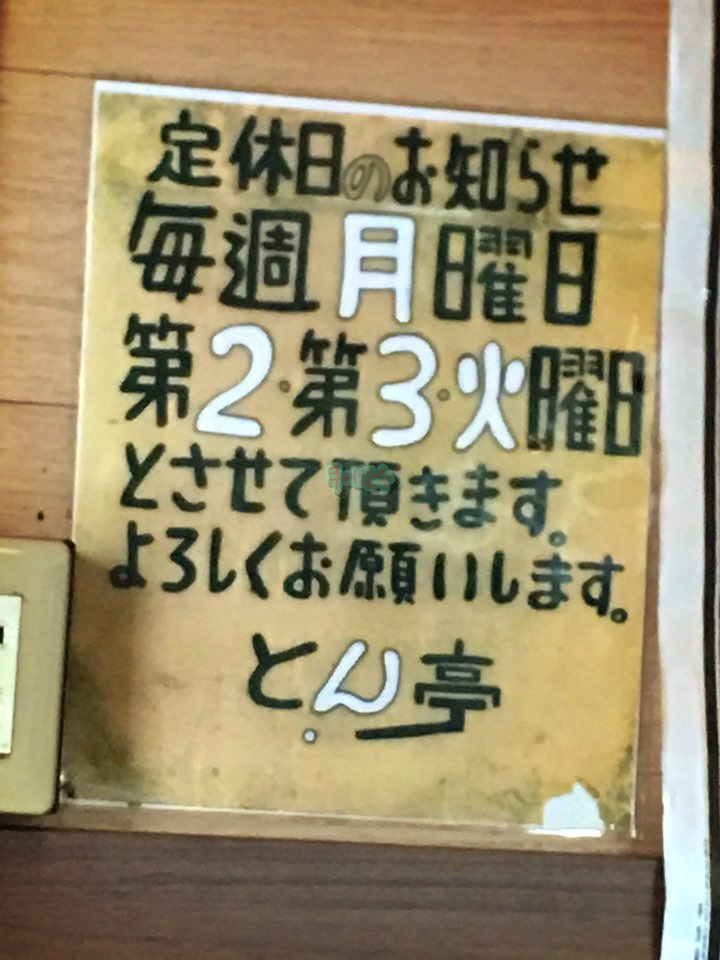 定休日のお知らせ
毎週月曜日
第2・第3・火曜日
とさせて頂きます。
よろしくお願いします。
とん亭